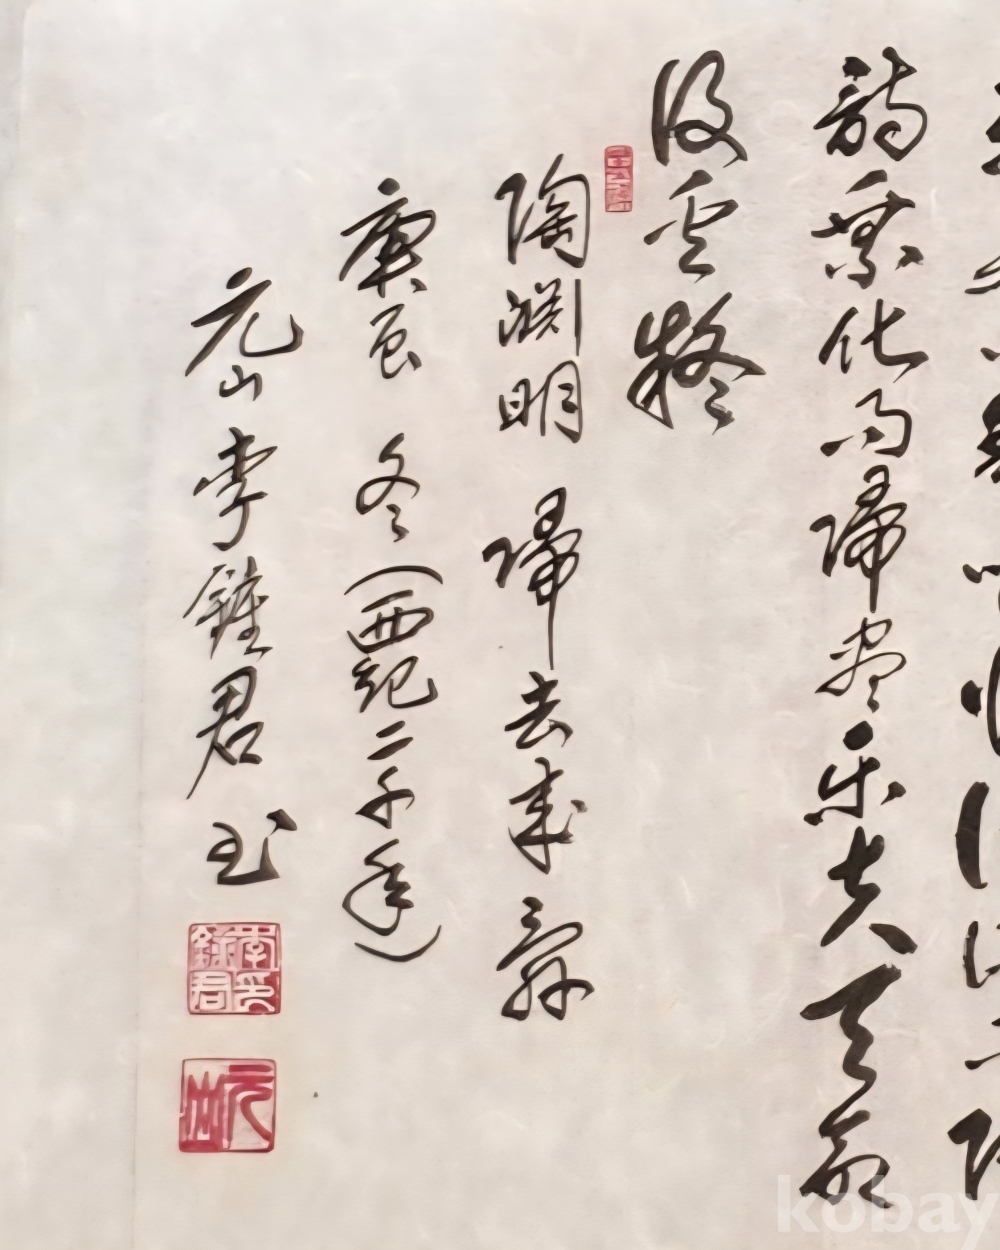 詩乘化以歸盡樂夫天命
復奚疑
陶淵明 歸去來辭
庚辰 冬(西紀二千年)
元山 李鍾君 書
李印鍾君
元山
kobay